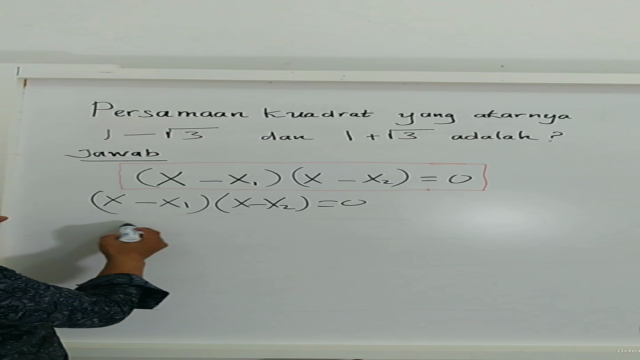 Persamaan kuadrat yang akarnya
1 - √3 dan 1 + √3 adalah?
Jawab
(X - X₁)(X - X₂) = 0
(X - X₁)(X - X₂) = 0